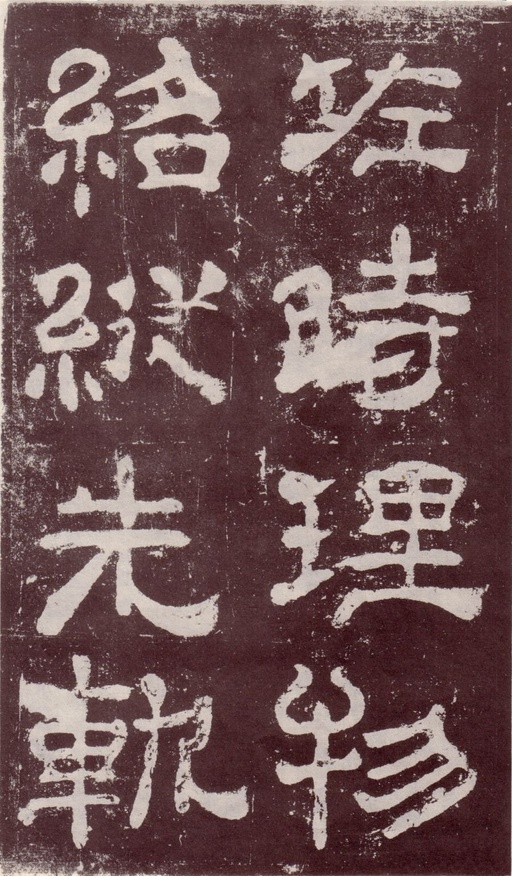 佐時理物
紹縱先軌